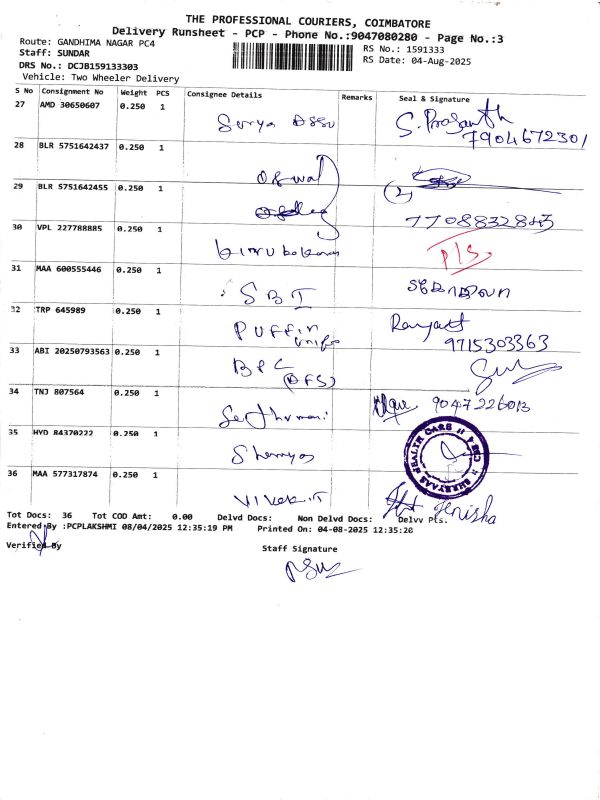 THE PROFESSIONAL COURIERS, COIMBATORE
Delivery Runsheet - PCP - Phone No.:9047080280 - Page No.:3
Route: GANDHIMA NAGAR PC4
RS No.: 1591333
Staff: SUNDAR
RS Date: 04-Aug-2025
DRS No.: DCJB159133303
Vehicle: Two Wheeler Delivery
S No Consignment No Weight PCS Consignee Details Remarks Seal & Signature
27 AMD 30650607 0.250 1 Surya S. Prasanth
7904672301
28 BLR 5751642437 0.250 1
29 BLR 5751642455 0.250 1 2
7708832843
30 VPL 227788885 0.250 1
31 MAA 600555446 0.250 1 SBI
32 TRP 645989 0.250 1 Puffin
9715303363
33 ABI 20250793563 0.250 1 BPC
(DFS)
34 TNJ 807564 0.250 1 9047226013
35 HYD 84370222 0.250 1 HEALTH CARE
36 MAA 577317874 0.250 1 Vivek T Jenisha
Tot Docs: 36 Tot COD Amt: 0.00 Delvd Docs: Non Delvd Docs: Delvv Pts.
Entered By :PCPLAKSHMI 08/04/2025 12:35:19 PM Printed On: 04-08-2025 12:35:20
Verified By
Staff Signature